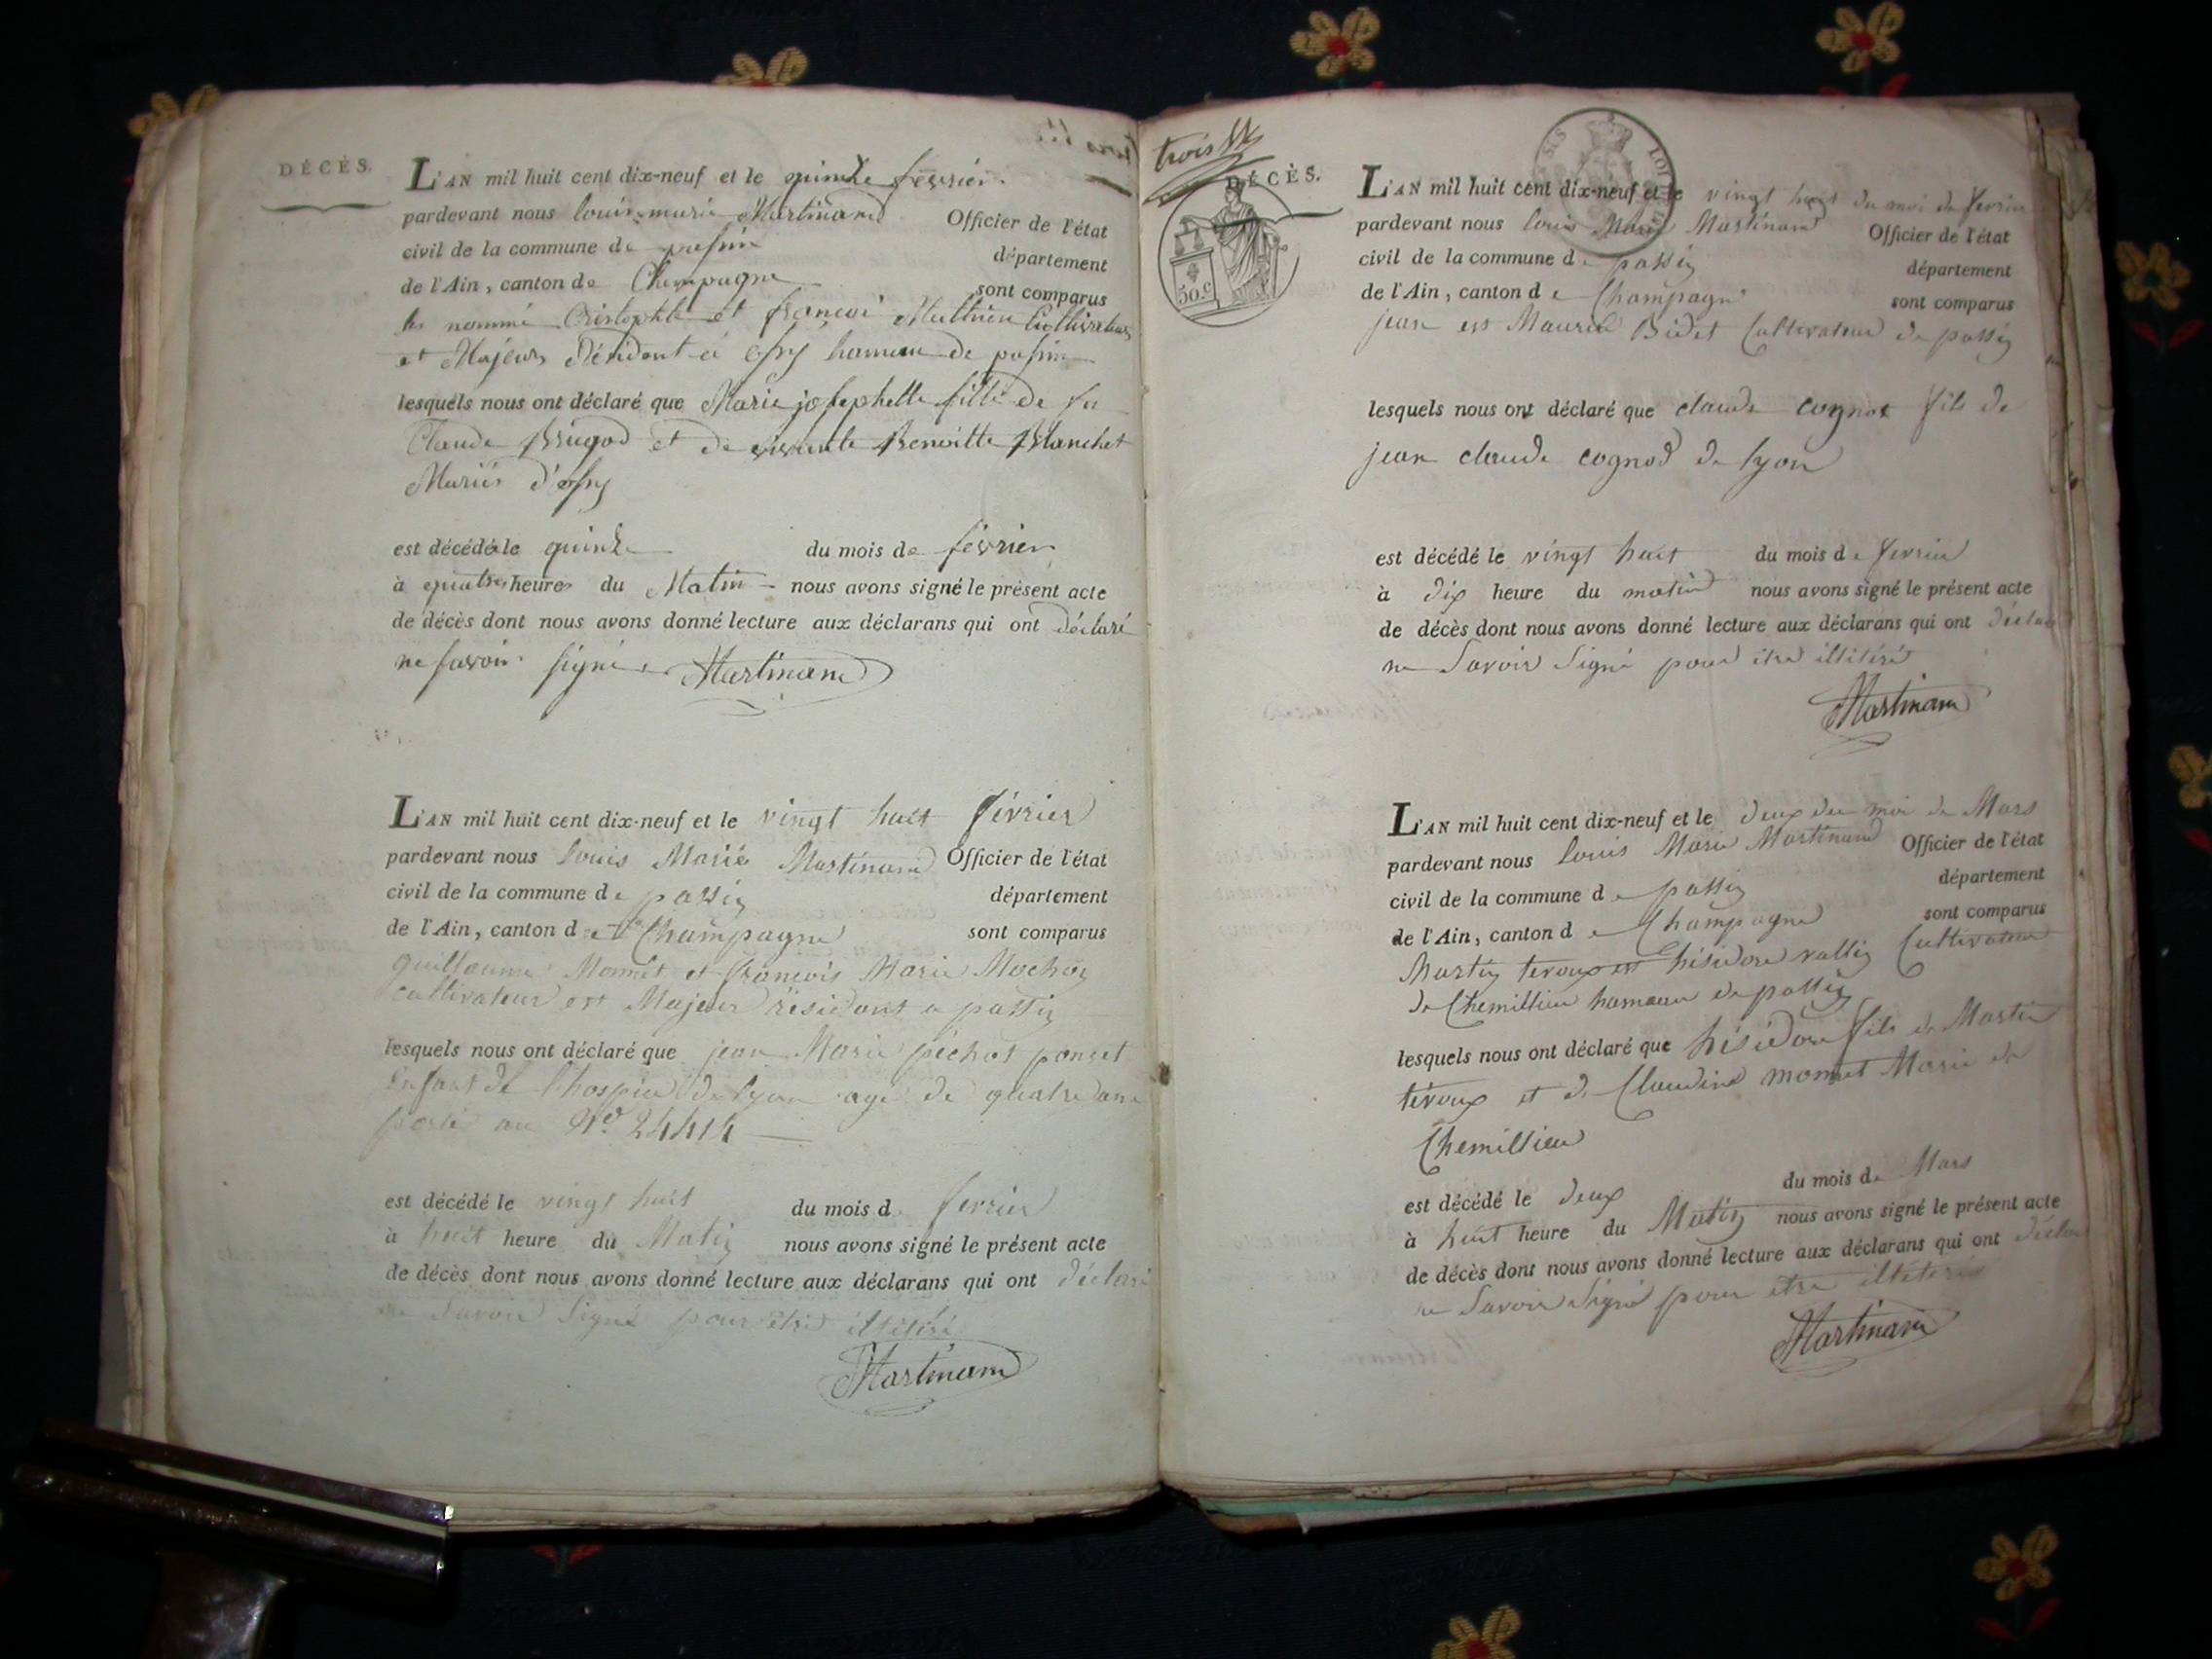 DÉCÈS.
L'AN mil huit cent dix-neuf et le quinze fevrier
pardevant nous louis marie Martinand Officier de l'état
civil de la commune de département
de l'Ain, canton de Champagne sont comparus
les nommé et françoi Cultivateurs
et Majeurs Résident à hameau de
lesquels nous ont déclaré que Marie josephette fille de fu
Claude Brugod et de vivante Benoitte Blanchet
Mariés
est décédé le quinze du mois de fevrier
à quatre heures du Matin nous avons signé le présent acte
de décès dont nous avons donné lecture aux déclarans qui ont déclaré
ne savoir signé Martinand
L'AN mil huit cent dix-neuf et le vingt huit février
pardevant nous louis Marie Martinand Officier de l'état
civil de la commune de passin département
de l'Ain, canton de Champagne sont comparus
guillaume Monnet et françois Marie Mochon
cultivateur est Majeur résidant a passin
lesquels nous ont déclaré que jean Marie pichot poncet
Enfant de l'hospice de lyon agé de quatre ans
porté au N° 24414
est décédé le vingt huit du mois de fevrier
à huit heure du Matin nous avons signé le présent acte
de décès dont nous avons donné lecture aux déclarans qui ont déclaré
ne Savoir Signé pour être illitéré
Martinand
trois
DÉCÈS.
50.c
L'AN mil huit cent dix-neuf et le vingt huit du moi de fevrier
pardevant nous louis Marie Martinand Officier de l'état
civil de la commune de passin département
de l'Ain, canton de Champagne sont comparus
jean est Maurice Bidet Cultivateur de passin
lesquels nous ont déclaré que claude cognot fils de
jean claude cognod de lyon
est décédé le vingt huit du mois de fevrier
à dix heure du matin nous avons signé le présent acte
de décès dont nous avons donné lecture aux déclarans qui ont déclaré
ne Savoir Signé pour être illitéré
Martinand
L'AN mil huit cent dix-neuf et le deux du moi de Mars
pardevant nous louis Marie Martinand Officier de l'état
civil de la commune de passin département
de l'Ain, canton de Champagne sont comparus
Martin teroux est hisidore vallin Cultivateur
de Chemillieu hameau de passin
lesquels nous ont déclaré que hisidore fils de Martin
téroux et de Claudine monnet Marie de
Chemillieu
est décédé le deux du mois de Mars
à huit heure du Matin nous avons signé le présent acte
de décès dont nous avons donné lecture aux déclarans qui ont déclaré
ne Savoir Signé pour être illitéré
Martinand